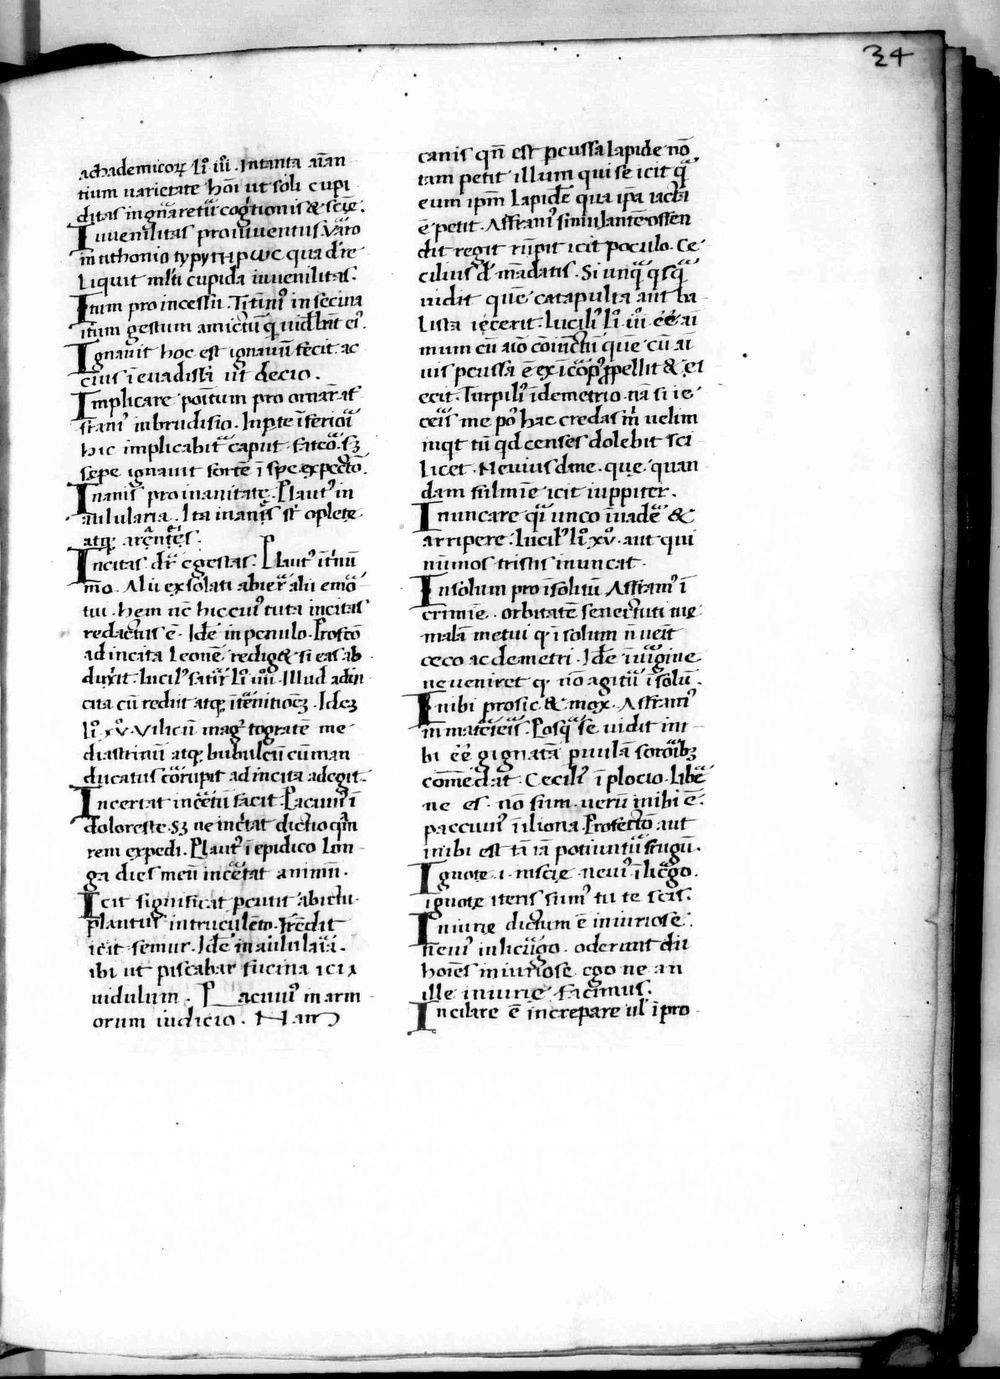 34
achademicoꝝ li̊ iii̊. In tanta aīan
tium uarietate hōī ut soli cupi
ditas ingnaretur cognitionis & scīe.
Iuuenilitas pro iuuentus Varro
in tithonio τypy quā dere
liquit mlti cupida iuuenilitas.
Itum pro incessū. Titinius in setina
itum gestum amictū qui uidebāt eius.
Ignauit hoc est ignauū fecit. ac
cius ī euadisti ut decio.
Implicare positum pro ornare af
franius in brudisio. In parte īferiori
hic implicabitur caput. fateor sꝫ
sepe ignauit fortē ī spe expecto.
Inanis pro inanitate. Plautus in
aulularia. Ita inanis st oplete
atqꝫ
Incitas dr̄ egestas. Plautus ī trinū
mo. Alii exsolati abierūt alii emor
tui. hem nc̄ hic cuius tuta incitas
redactus ē. Idē in penulo. Profecto
ad incita leonē rediget si eas ab
duxit. Lucilius satir li̊ iiii̊. Illud ad in
cita cū rediit atqꝫ īternitionē. Idē
li̊. xv. Vilicū magr̄ togratē me
diastrinū atqꝫ bubulcū cū man
ducatus corrupit ad incita adegit.
Incertat incertū facit. Pacuuius ī
doloreste. Sꝫ ne incertat dictio qm̄
rem expedi. Plautus ī epidico lon
ga dies meū incertat animū.
Icit significat percutit ab ictu.
plantus in truculento. Ircedit
icit femur. Idē in aulularia.
ibi ut piscabar fucina icix
uidulum. Pacuuius in arm
orum iudicio. Nam
canis qn̄ est pcussa lapide nō
tam petit illum qui se icit quā
eum ipm̄ lapidē qua ipa iacta
ē petit. Affranius simulante ossen
dit regit rūpit icit poculo. Ce
cilius d̄ mādatis. Si unquā qsquā
uidit quē catapulta aut ba
lista iecerit. Lucilius li̊ iii̊ ēē ai
mum cū aīo cōiūctū que cū ai
uis pcussa ē ex icopropellit & ei
ecit. Turpilius ī demetrio. nā si ie
ceris me po hac credas m̄ uelim
inqt tū qd censes dolebit sci
licet. Neuius dane. que quan
dam fulmīe icit iuppiter.
Inuncare qui unco īuadere &
arripere. Lucilius li̊. xv. aut qui
nūmos tristis inuncat.
Insolum pro īsolitū. Affranius ī
crimīe. orbitatē senectuti tue
malā metui qr īsolum n̄ ueīt
ceco ac demetri. Idē ī uirgine
ne ueniret qr nō agitur īsolū.
Inibi pro sic & mox. Affranius
in materteris. Posquā se uidit ini
bi ēē gignatā paruulā sororibꝫ
cōmēdat. Cecilius ī plocio. liberē
ne es. no sum. uerū inibi ē.
paccuuius ī iliona. Profecto aut
inibi est tā iā potiuntur frugū.
Ignote .i. inscie. neuius ī licurgo.
ignote itens sumus tu te scis.
Iniurie dictum ē iniuriose.
neuius in licurgo. oderunt dii
hoīes iniuriose. ego ne an
ille iniurie facimus.
Incilare ē increpare uel īpro